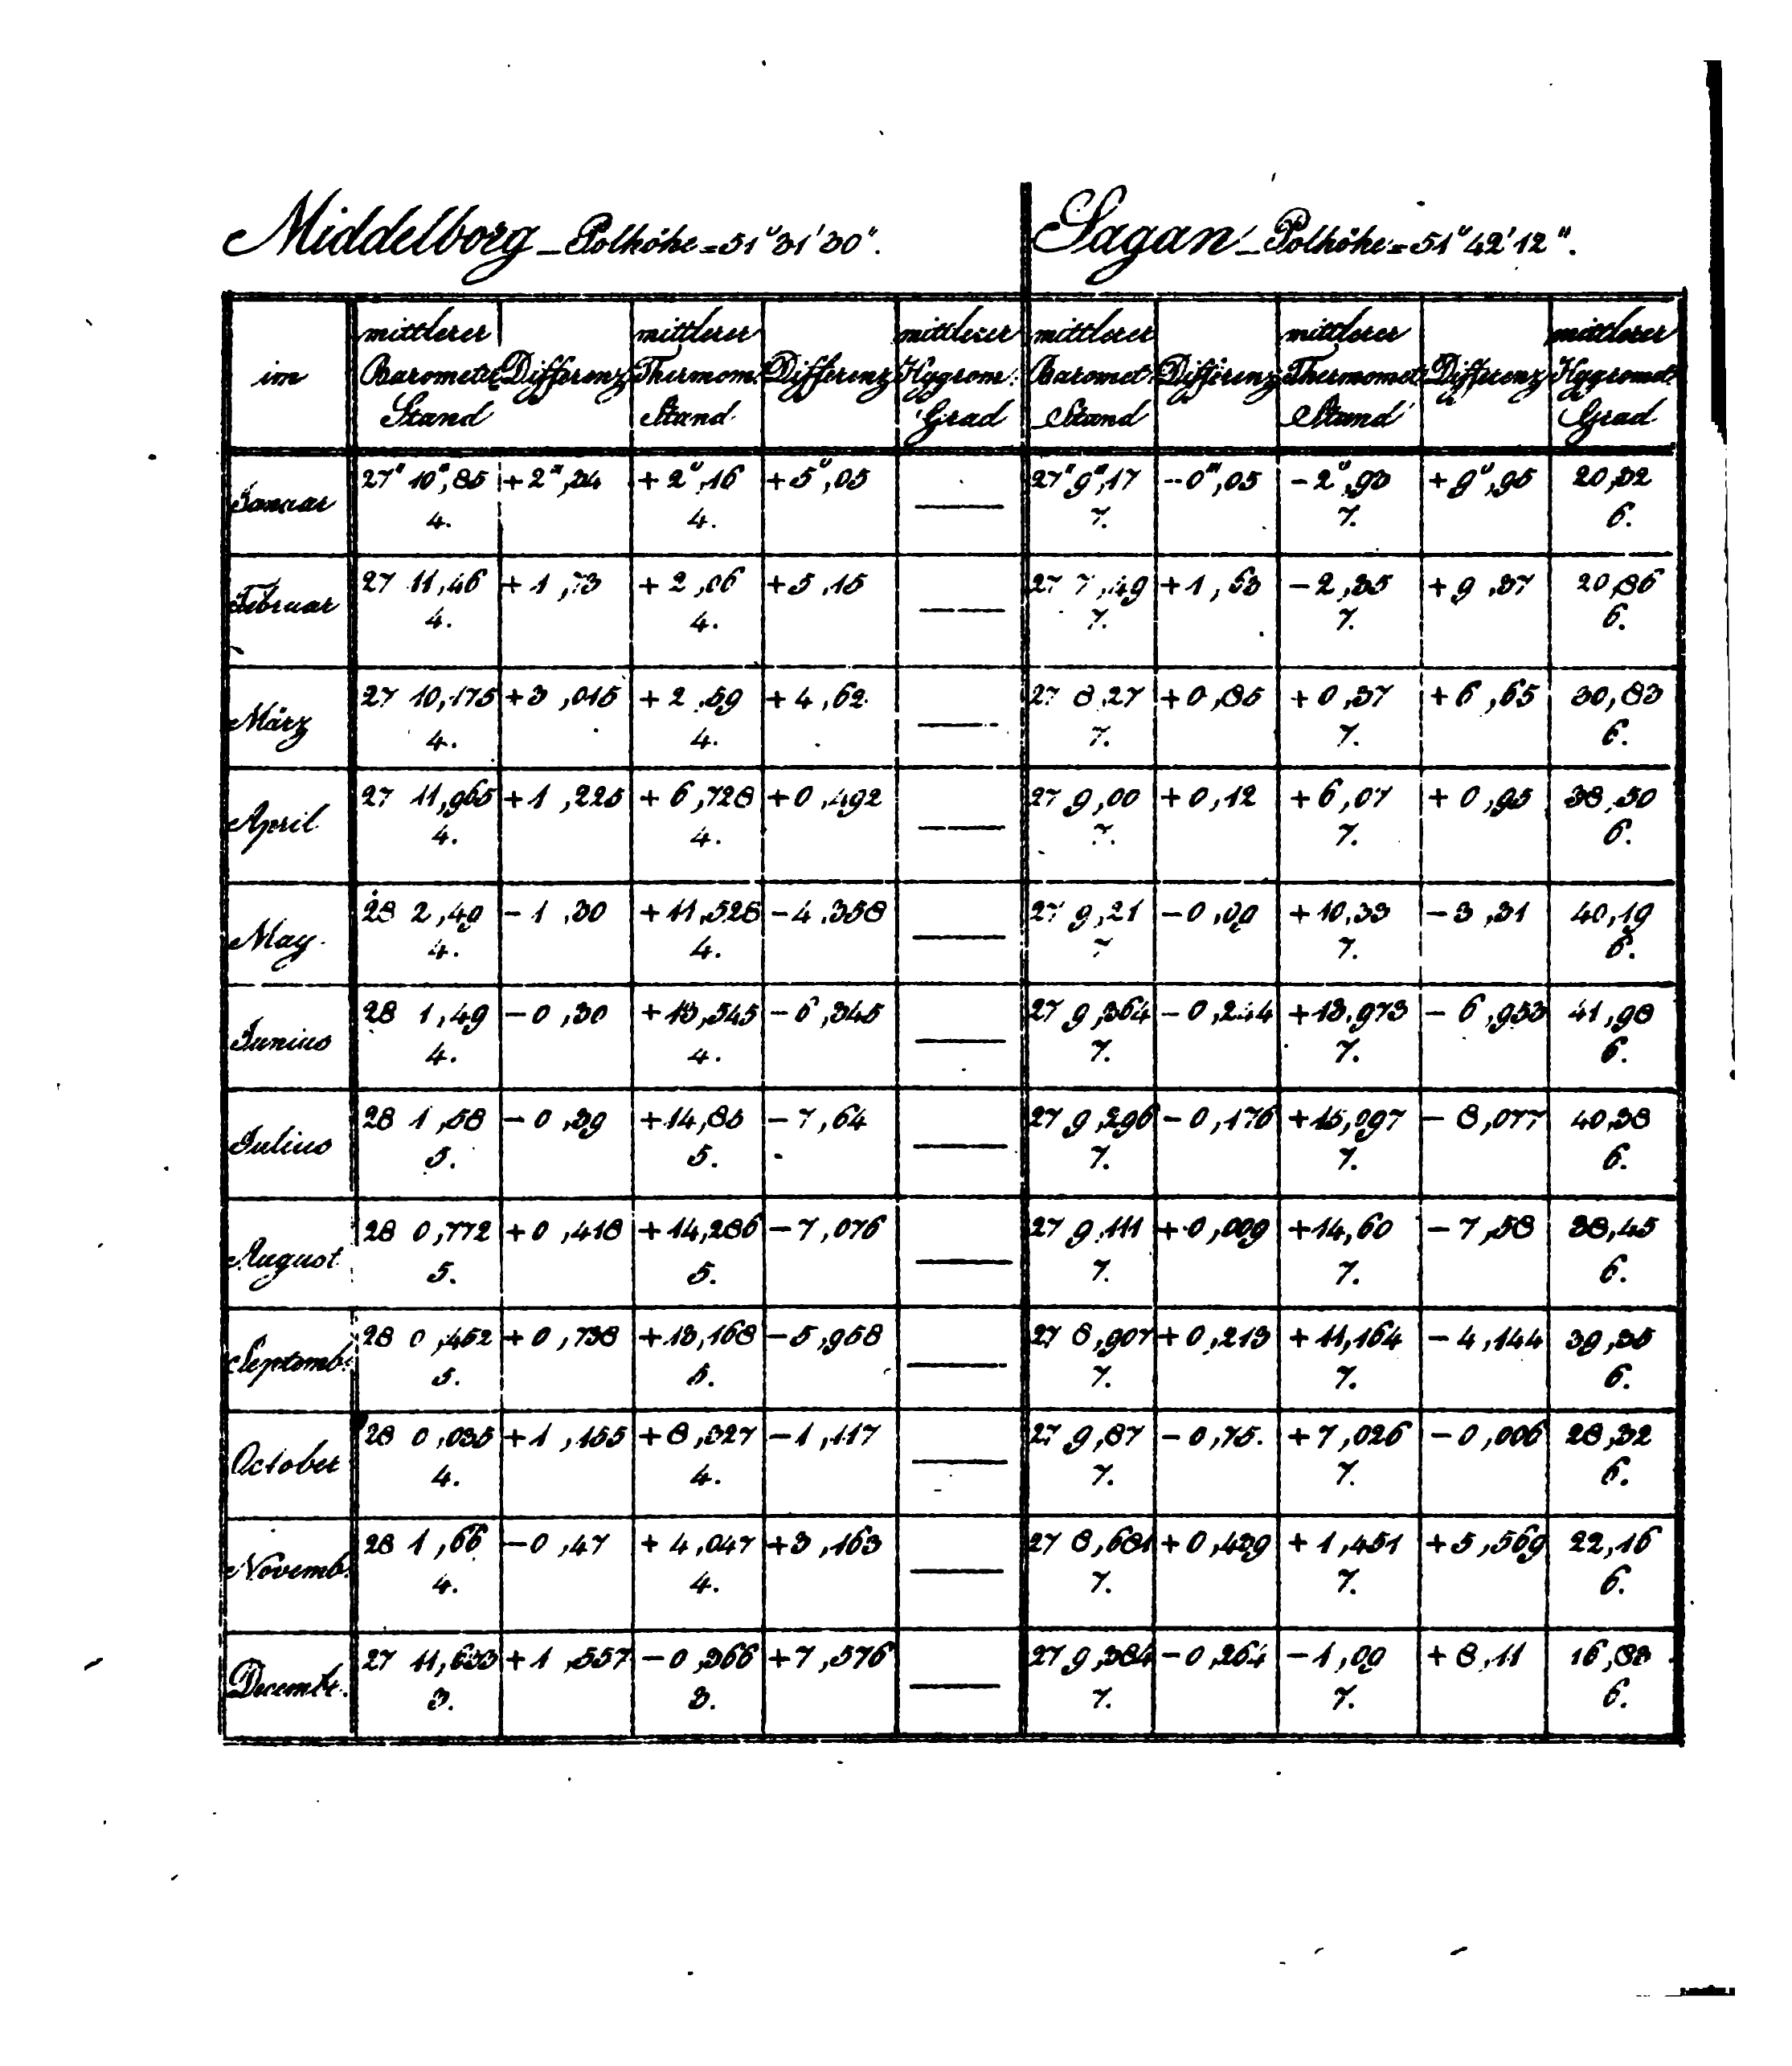 Middelborg - Polhöhe = 51° 31' 30".
Sagan - Polhöhe = 51° 42' 12".
im mittlerer Barometer Stand Differenz mittlerer Thermom. Stand Differenz mittlerer Hygrom. Grad mittlerer Baromet. Stand Differenz mittlerer Thermomet. Stand Differenz mittlerer Hygromet. Grad
Januar 27" 10''',85 +2''',34 +2°,16 +5°,05 — 27" 9''',17 -0''',05 -2°,93 +9°,95 20,32
4. 4. 7. 7. 6.
Februar 27 11,46 +1,73 +2,06 +5,15 — 27 7,49 +1,63 -2,35 +9,37 20,86
4. 4. 7. 7. 6.
März 27 10,175 +3,015 +2,59 +4,62 — 27 8,27 +0,85 +0,37 +6,65 30,83
4. 4. 7. 7. 6.
April 27 11,965 +1,225 +6,728 +0,492 — 27 9,00 +0,12 +6,07 +0,95 38,50
4. 4. 7. 7. 6.
May 28 2,49 -1,30 +11,528 -4,358 — 27 9,21 -0,09 +10,33 -3,31 40,19
4. 4. 7 7. 6.
Junius 28 1,49 -0,30 +13,545 -6,345 — 27 9,364 -0,244 +13,973 -6,953 41,98
4. 4. 7. 7. 6.
Julius 28 1,58 -0,39 +14,85 -7,64 — 27 9,296 -0,176 +15,097 -8,077 40,38
5. 5. 7. 7. 6.
August 28 0,772 +0,418 +14,286 -7,076 — 27 9,111 +0,009 +14,60 -7,58 38,45
5. 5. 7. 7. 6.
Septemb. 28 0,452 +0,738 +13,168 -5,958 — 27 8,907 +0,213 +11,164 -4,144 39,35
5. 5. 7. 7. 6.
October 28 0,035 +1,155 +8,327 -1,117 — 27 9,87 -0,75. +7,026 -0,006 28,32
4. 4. 7. 7. 6.
Novemb. 28 1,66 -0,47 +4,047 +3,163 — 27 8,681 +0,439 +1,451 +5,569 22,16
4. 4. 7. 7. 6.
Decembr. 27 11,633 +1,557 -0,366 +7,576 — 27 9,384 -0,264 -1,09 +8,11 16,83
3. 3. 7. 7. 6.